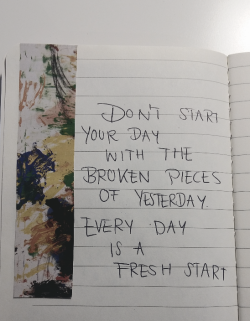 DON'T START
YOUR DAY
WITH THE
BROKEN PIECES
OF YESTERDAY.
EVERY DAY
IS A
FRESH START